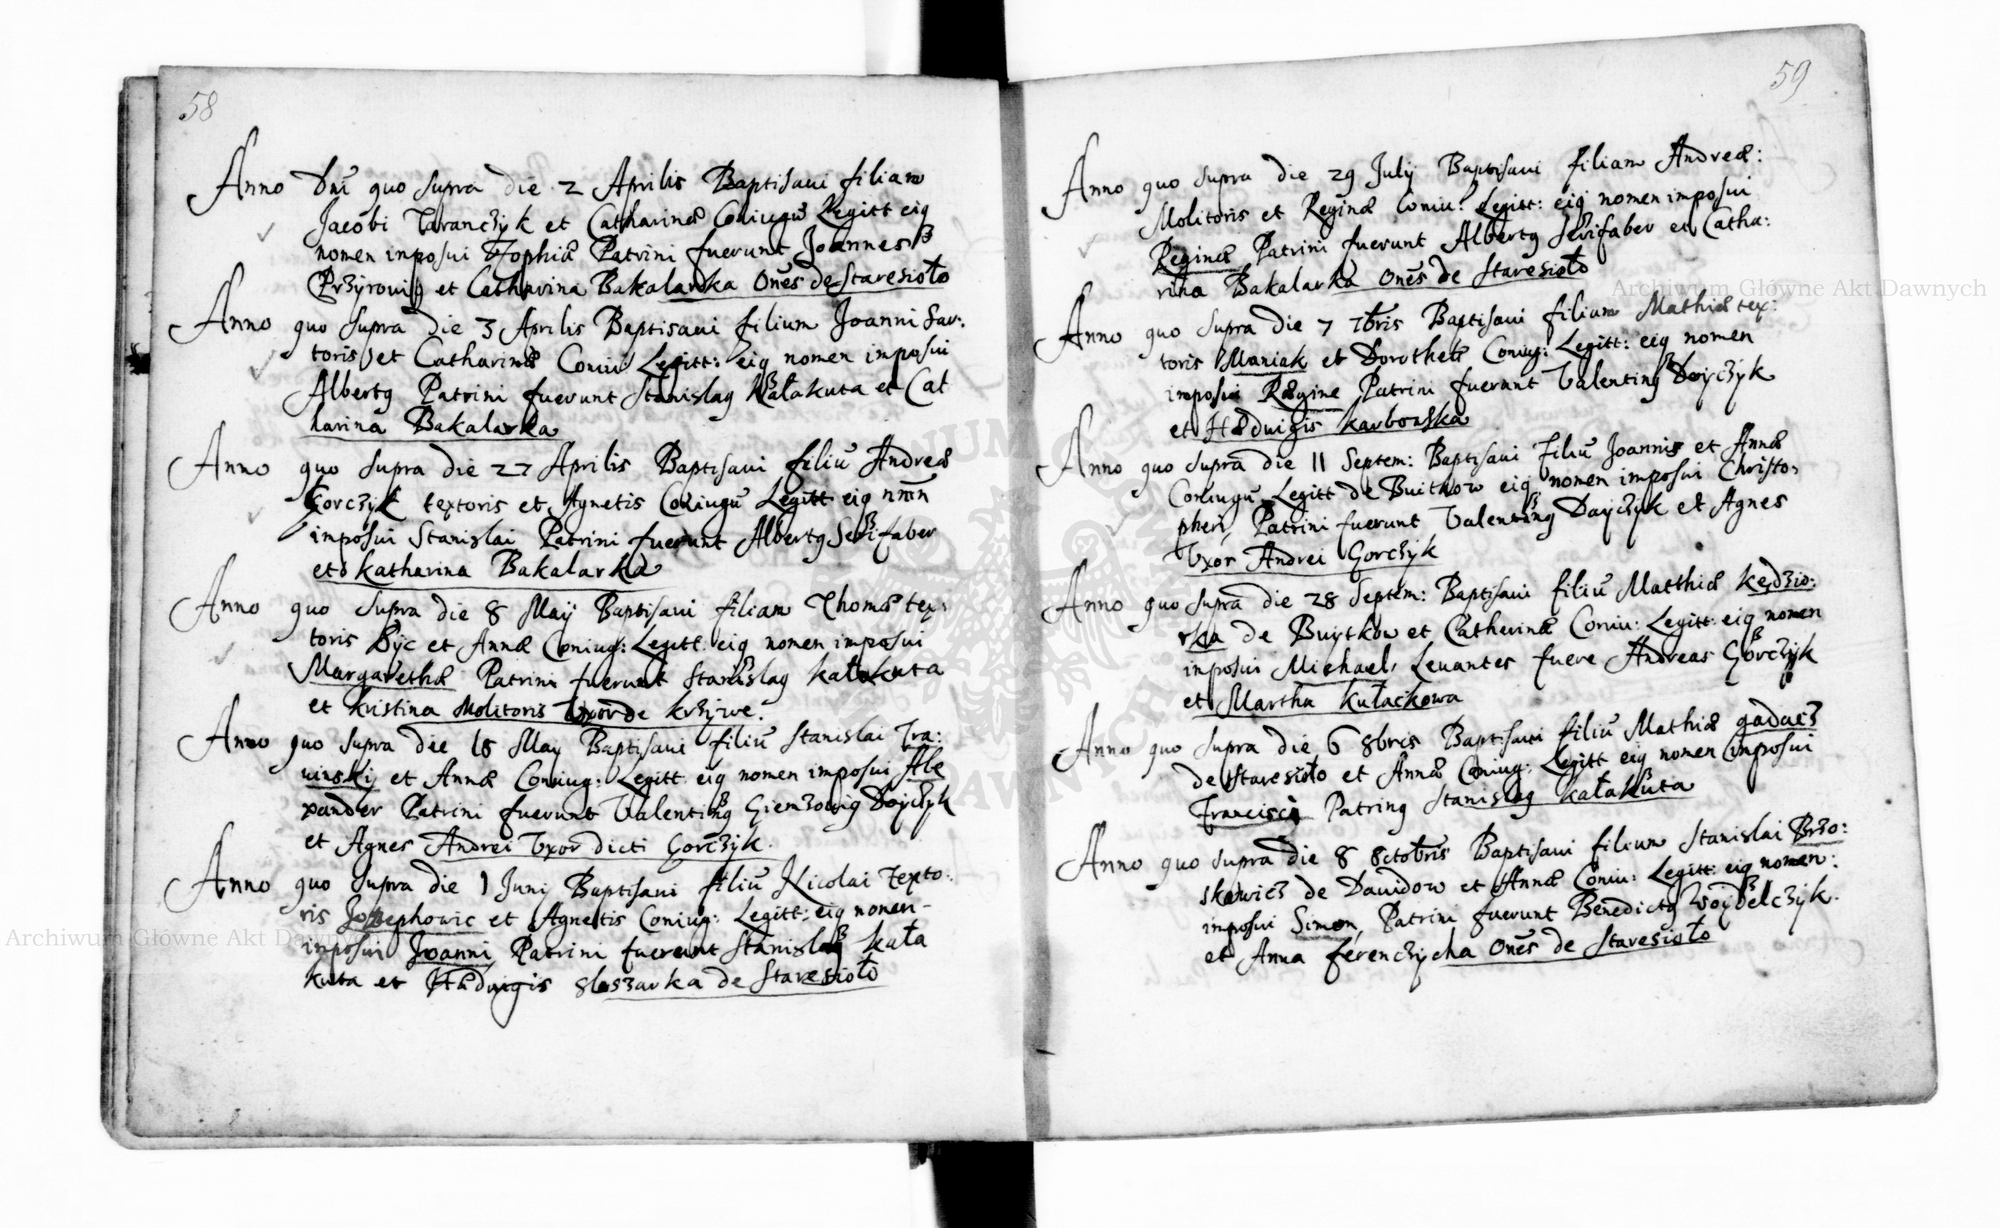 58
Anno Dni quo supra die 2 Aprilis Baptisaui filiam
Jacobi Taranczyk et Catharinæ Coniugũ Legitt eiq
nomen imposui Zophiæ Patrini fuerunt Joannes
et Catharina Bakalarka Onẽs de Staresioło
Anno quo supra die 3 Aprilis Baptisaui filium Joanni Sar:
toris et Catharinæ Coniu Legitt: eiq nomen imposui
Albertq Patrini fuerunt Stanislaq Kałakuta et Cat
harina Bakalarka
Anno quo supra die 27 Aprilis Baptisaui filiũ Andreæ
Gorczyk textoris et Agnetis Coniugũ Legitt eiq nmn
imposui Stanislai Patrini fuerunt Albertq Serifaber
et Katharina Bakalarka
Anno quo supra die 8 May Baptisaui filiam Thomæ tex:
toris Byc et Annæ Coniug: Legitt: eiq nomen imposui
Margarethæ Patrini fuerunt Stanislaq kałakuta
et Kristina Molitoris Vxor de krzywe.
Anno quo supra die 18 May Baptisaui filiũ Stanislai Tra:
uinskij et Annæ Coniug: Legitt: eiq nomen imposui Ale
xander Patrini fuerunt Valentinq Dojczyk
et Agnes Andrei Vxor dicti Gorczyk.
Anno quo supra die 1 Junij Baptisaui filiũ Nicolai Texto:
ris Josephowic et Agnetis Coniug: Legitt: eiq nomen-
imposui Joanni Patrini fuerunt Stanislaq Kała
kuta et Hædwigis sloszarka de Staresioło
59
Anno quo supra die 29 July Baptisaui filiam Andreæ:
Molitoris et Reginæ Coniu: Legitt: eiq nomen imposui
Reginæ Patrini fuerunt Albertq Serifaber et Catha:
rina Bakalarka Onẽs de Staresioło
Anno quo supra die 7 7bris Baptisaui filium Mathiæ tex:
toris Maniak et Dorotheæ Coniug: Legitt: eiq nomen
imposui Rægine Patrini fuerunt Valentinq Doyczyk
et Hædwigis karbowska
Anno quo supra die 11 Septem: Baptisaui Filiũ Joannis et Annæ
Coniugũ Legitt de Buitkow eiq nomen imposui Christo:
pheri, Patrini fuerunt Valentinq Dayczyk et Agnes
Vxor Andrei Gorczyk
Anno quo supra die 28 Septem: Baptisaui filiũ Matthiæ kędzio:
rka de Buytkow et Catherinæ Coniu: Legitt: eiq nomen
imposui Michael, Leuantes fuere Andreas Gorczyk
et Martha Kułackowa
Anno quo supra die 6 8bris Baptisaui filiũ Mathiæ gadacz
de Staresioło et Annæ Coniug: Legitt eiq nomen imposui
Francisci Patrinq Stanislaq kałakuta
Anno quo supra die 8 8ctobris Baptisaui filium Stanislai Brzo:
skowicz de Dauidow et Annæ Coniu: Legitt: eiq nomen:
imposui Simon, Patrini fuerunt Benedictq Woydelczyk.
et Anna ferenczycha Onẽs de Staresioło
Archiwum Główne Akt Dawnych
Archiwum Główne Akt Dawnych